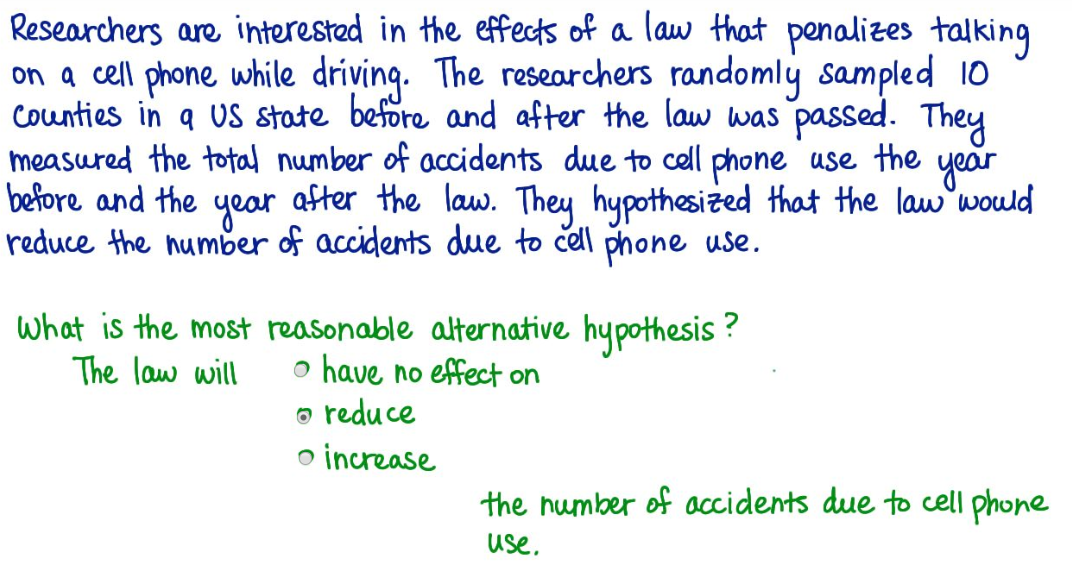 Researchers are interested in the effects of a law that penalizes talking
on a cell phone while driving. The researchers randomly sampled 10
Counties in a US state before and after the law was passed. They
measured the total number of accidents due to cell phone use the year
before and the year after the law. They hypothesized that the law would
reduce the number of accidents due to cell phone use.
What is the most reasonable alternative hypothesis?
The law will have no effect on
reduce
increase
the number of accidents due to cell phone
use.